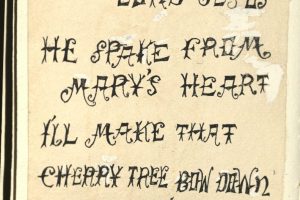 LORD JESUS
HE SPAKE FROM
MARY'S HEART
I'LL MAKE THAT
CHERRY TREE BOW DOWN